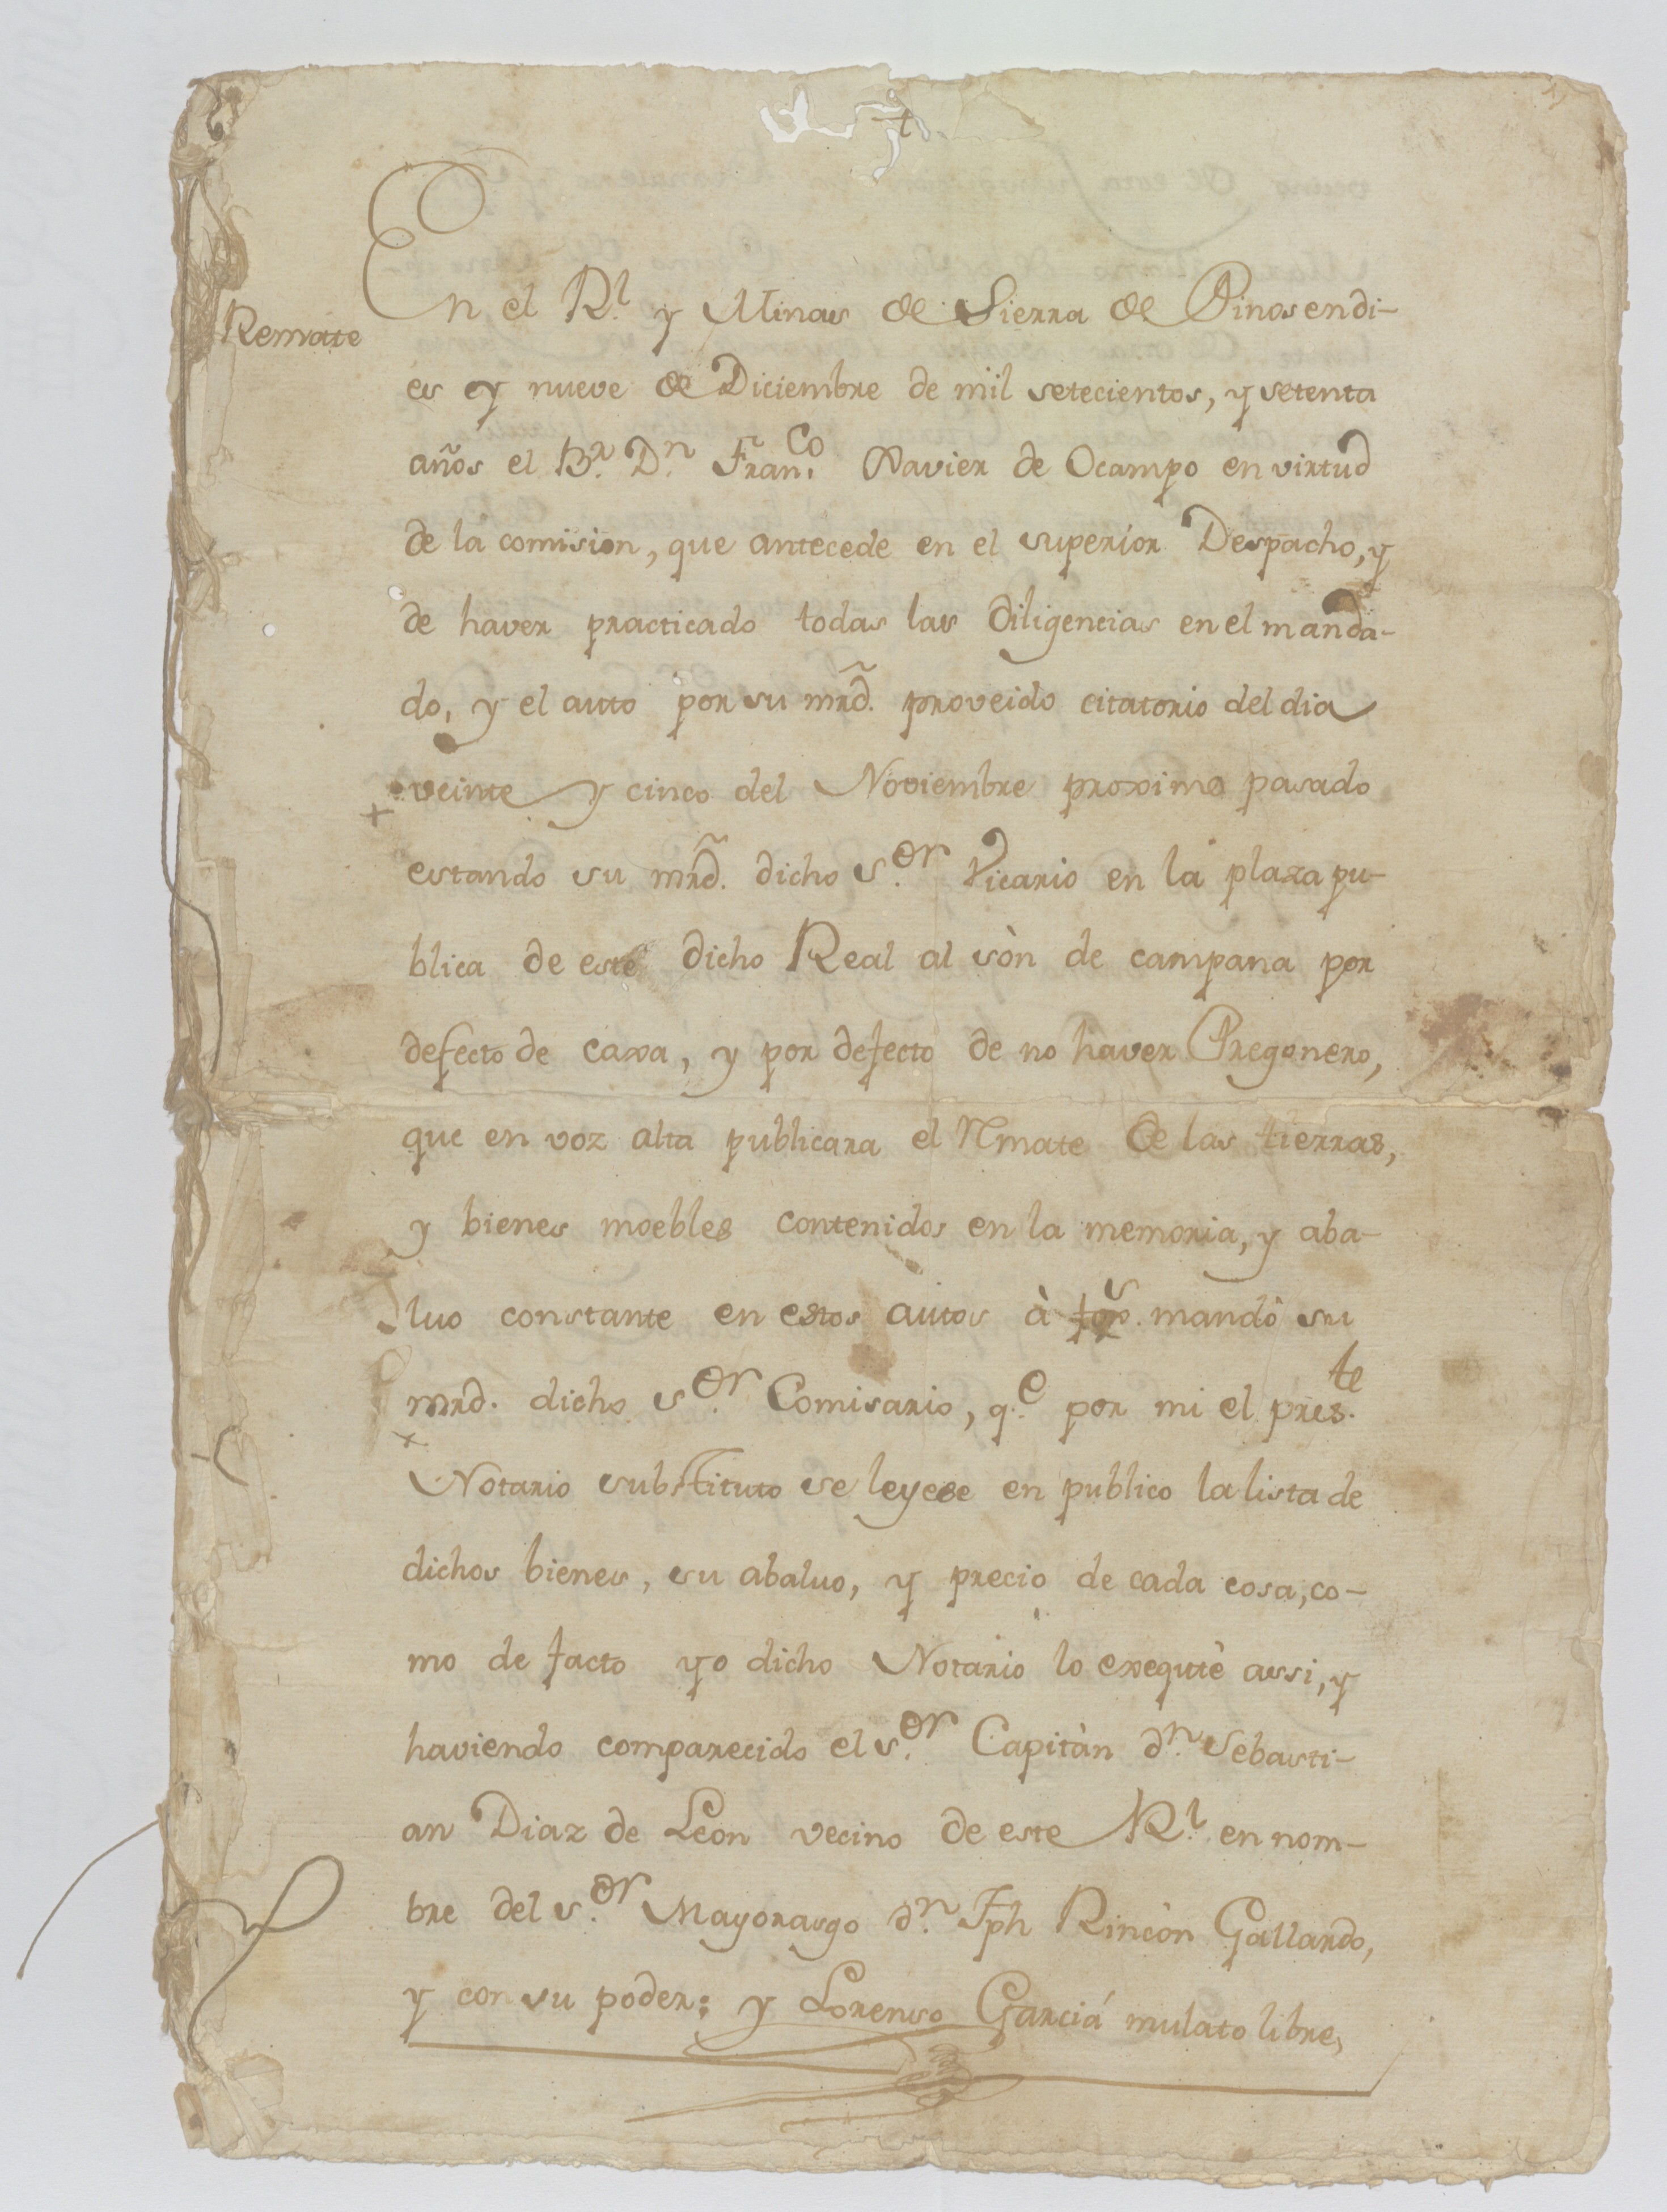 †
En el Rl. y Minas de Sierra de Pinos en di-
Remate
es y nueve de Diciembre de mil setecientos, y setenta
años el Br. Dn. Franco. Xavier de Ocampo en virtud
de la comision, que antecede en el superior Despacho, y
de haver practicado todas las diligencias en el manda-
do, y el auto por su mrd. proveido citatorio del dia
veinte y cinco del Noviembre proximo pasado
estando su mrd. dicho sor. Vicario en la plaza pu-
blica de este dicho Real al sòn de campana por
defecto de caxa, y por defecto de no haver Pregonero,
que en voz alta publicara el Rmate de las tierras,
y bienes moebles contenidos en la memoria, y aba-
luo constante en estos autos à mandò su
mrd. dicho sor. Comisario, q.e por mi el preste.
Notario substituto se leyese en publico la lista de
dichos bienes, su abaluo, y precio de cada cosa, co-
mo de facto yo dicho Notario lo exequtè assi, y
haviendo comparecido el sor. Capitàn dn. Sebasti-
an Diaz de Leon vecino de este Rl. en nom-
bre del sor. Mayorasgo dn. Jph Rincòn Gallardo,
y con su poder: y Lorenso Garciá mulato libre,